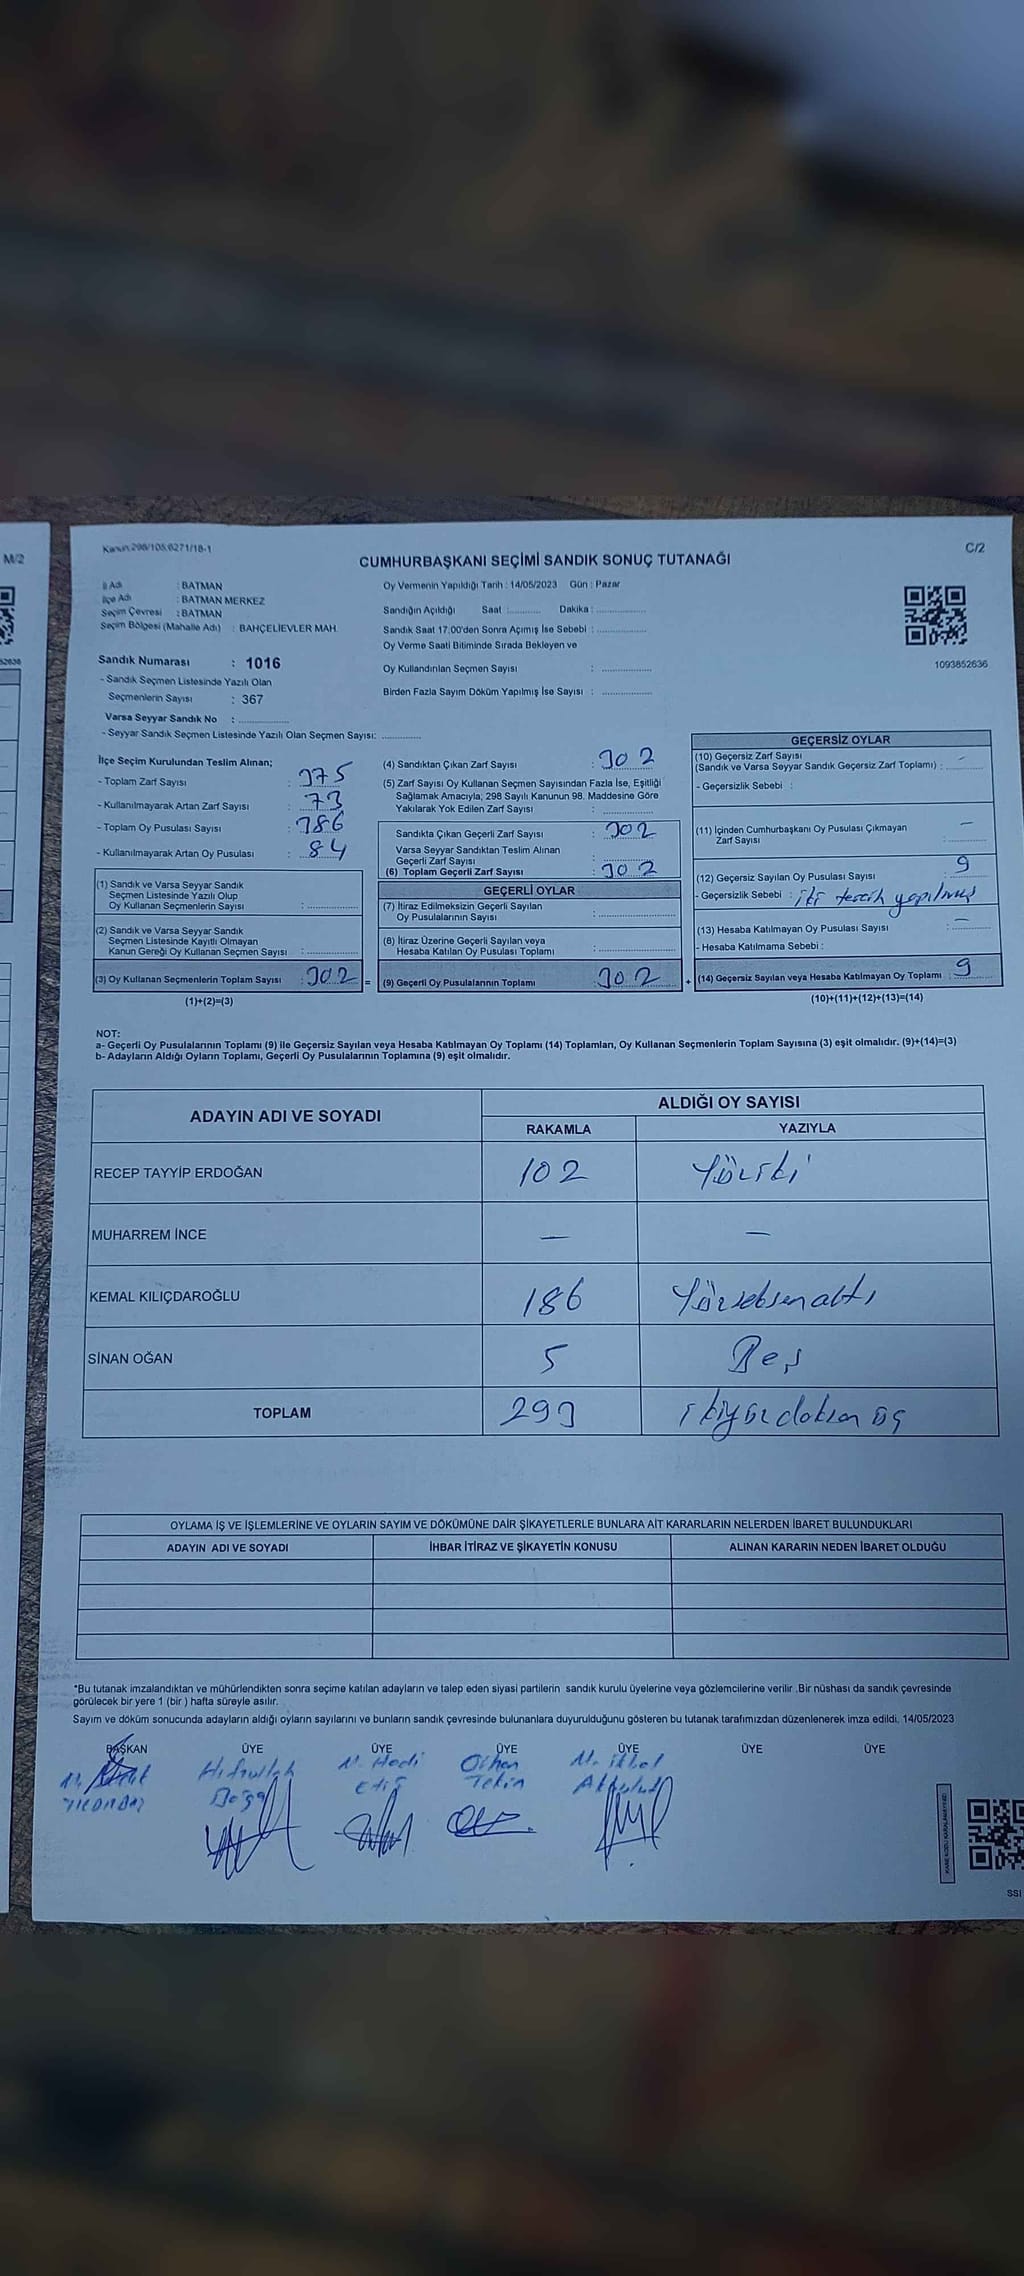 M/2
Kanun:298/105,6271/18-1
C/2
CUMHURBAŞKANI SEÇİMİ SANDIK SONUÇ TUTANAĞI
İl Adı : BATMAN
İlçe Adı : BATMAN MERKEZ
Seçim Çevresi : BATMAN
Seçim Bölgesi (Mahalle Adı) : BAHÇELİEVLER MAH.
Oy Vermenin Yapıldığı Tarih : 14/05/2023 Gün : Pazar
Sandığın Açıldığı Saat :............ Dakika :................
Sandık Saat 17:00'den Sonra Açımış İse Sebebi :................
Oy Verme Saati Bitiminde Sırada Bekleyen ve
Oy Kullandırılan Seçmen Sayısı : ................
Birden Fazla Sayım Döküm Yapılmış İse Sayısı : ................
1093852636
Sandık Numarası : 1016
- Sandık Seçmen Listesinde Yazılı Olan
Seçmenlerin Sayısı : 367
Varsa Seyyar Sandık No : ................
- Seyyar Sandık Seçmen Listesinde Yazılı Olan Seçmen Sayısı: ............
İlçe Seçim Kurulundan Teslim Alınan;
- Toplam Zarf Sayısı : 375
- Kullanılmayarak Artan Zarf Sayısı : 73
- Toplam Oy Pusulası Sayısı : 386
- Kullanılmayarak Artan Oy Pusulası : 84
(1) Sandık ve Varsa Seyyar Sandık
Seçmen Listesinde Yazılı Olup
Oy Kullanan Seçmenlerin Sayısı :................
(2) Sandık ve Varsa Seyyar Sandık
Seçmen Listesinde Kayıtlı Olmayan
Kanun Gereği Oy Kullanan Seçmen Sayısı :................
(3) Oy Kullanan Seçmenlerin Toplam Sayısı : 302 =
(1)+(2)=(3)
(4) Sandıktan Çıkan Zarf Sayısı : 302
(5) Zarf Sayısı Oy Kullanan Seçmen Sayısından Fazla İse, Eşitliği
Sağlamak Amacıyla, 298 Sayılı Kanunun 98. Maddesine Göre
Yakılarak Yok Edilen Zarf Sayısı :................
Sandıkta Çıkan Geçerli Zarf Sayısı : 302
Varsa Seyyar Sandıktan Teslim Alınan
Geçerli Zarf Sayısı :................
(6) Toplam Geçerli Zarf Sayısı : 302
GEÇERLİ OYLAR
(7) İtiraz Edilmeksizin Geçerli Sayılan
Oy Pusulalarının Sayısı :................
(8) İtiraz Üzerine Geçerli Sayılan veya
Hesaba Katılan Oy Pusulası Toplamı :................
(9) Geçerli Oy Pusulalarının Toplamı : 302 +
GEÇERSİZ OYLAR
(10) Geçersiz Zarf Sayısı
(Sandık ve Varsa Seyyar Sandık Geçersiz Zarf Toplamı) : –
- Geçersizlik Sebebi :
(11) İçinden Cumhurbaşkanı Oy Pusulası Çıkmayan
Zarf Sayısı : –
(12) Geçersiz Sayılan Oy Pusulası Sayısı : 9
- Geçersizlik Sebebi : iki tercih yapılmış
(13) Hesaba Katılmayan Oy Pusulası Sayısı : –
- Hesaba Katılmama Sebebi :
(14) Geçersiz Sayılan veya Hesaba Katılmayan Oy Toplamı : 9
(10)+(11)+(12)+(13)=(14)
NOT:
a- Geçerli Oy Pusulalarının Toplamı (9) ile Geçersiz Sayılan veya Hesaba Katılmayan Oy Toplamı (14) Toplamları, Oy Kullanan Seçmenlerin Toplam Sayısına (3) eşit olmalıdır. (9)+(14)=(3)
b- Adayların Aldığı Oyların Toplamı, Geçerli Oy Pusulalarının Toplamına (9) eşit olmalıdır.
ADAYIN ADI VE SOYADI
ALDIĞI OY SAYISI
RAKAMLA YAZIYLA
RECEP TAYYİP ERDOĞAN 102 Yüziki
MUHARREM İNCE – –
KEMAL KILIÇDAROĞLU 186 Yüzseksenaltı
SİNAN OĞAN 5 Beş
TOPLAM 293 ikiyüzdoksan üç
OYLAMA İŞ VE İŞLEMLERİNE VE OYLARIN SAYIM VE DÖKÜMÜNE DAİR ŞİKAYETLERLE BUNLARA AİT KARARLARIN NELERDEN İBARET BULUNDUKLARI
ADAYIN ADI VE SOYADI İHBAR İTİRAZ VE ŞİKAYETİN KONUSU ALINAN KARARIN NEDEN İBARET OLDUĞU
*Bu tutanak imzalandıktan ve mühürlendikten sonra seçime katılan adayların ve talep eden siyasi partilerin sandık kurulu üyelerine veya gözlemcilerine verilir .Bir nüshası da sandık çevresinde
görülecek bir yere 1 (bir ) hafta süreyle asılır.
Sayım ve döküm sonucunda adayların aldığı oyların sayılarını ve bunların sandık çevresinde bulunanlara duyurulduğunu gösteren bu tutanak tarafımızdan düzenlenerek imza edildi. 14/05/2023
BAŞKAN ÜYE ÜYE ÜYE ÜYE ÜYE ÜYE
Orhan
Tekin
SSI